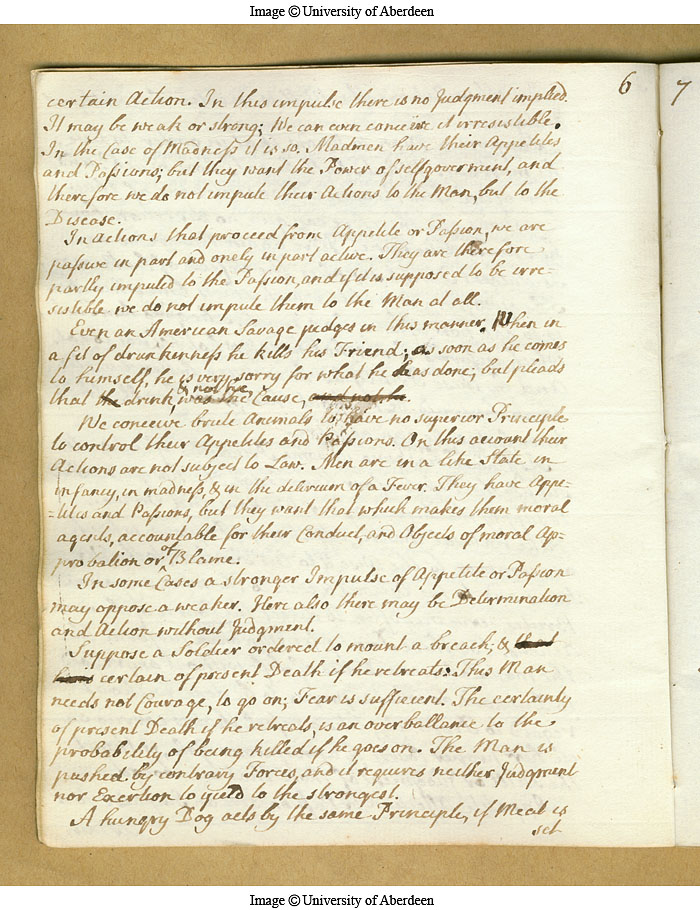 Image © University of Aberdeen
6
7
certain Action. In this impulse there is no Judgment implied.
It may be weak or strong; We can even conceive it irresistible.
In the Case of Madness it is so. Madmen have their Appetites
and Passions; but they want the Power of selfgoverment, and
therefore we do not impute their Actions to the Man, but to the
Disease.
In Actions that proceed from Appetite or Passion, we are
passive in part and onely in part active. They are therefore
partly imputed to the Passion, and if it is supposed to be irre=
sistible we do not impute them to the Man at all.
Even an American Savage judges in this manner. When in
a fit of drunkenness he kills his Friend; as soon as he comes
to himself, he is very sorry for what he has done; but pleads
& not he
that the drink, was the Cause, and not he.
We conceive brute Animals to have no superior Principle
to control their Appetites and Passions. On this account their
Actions are not subject to Law. Men are in a like State in
infancy, in madness, & in the delirium of a Fever. They have Appe=
=tites and Passions, but they want that which makes them moral
agents, accountable for their Conduct, and Objects of moral Ap=
probation or of Blame.
In some Cases a stronger Impulse of Appetite or Passion
may oppose a weaker. Here also there may be Determination
and Action without Judgment.
Suppose a Soldier ordered to mount a breach, & that
certain of present Death if he retreats. This Man
needs not Courage, to go on; Fear is sufficient. The certainty
of present Death if he retreats, is an overballance to the
probability of being killed if he goes on. The Man is
pushed by contrary Forces, and it requires neither Judgment
nor Exertion to yield to the strongest.
A hungry Dog acts by the same Principle, if Meat is
set
Image © University of Aberdeen